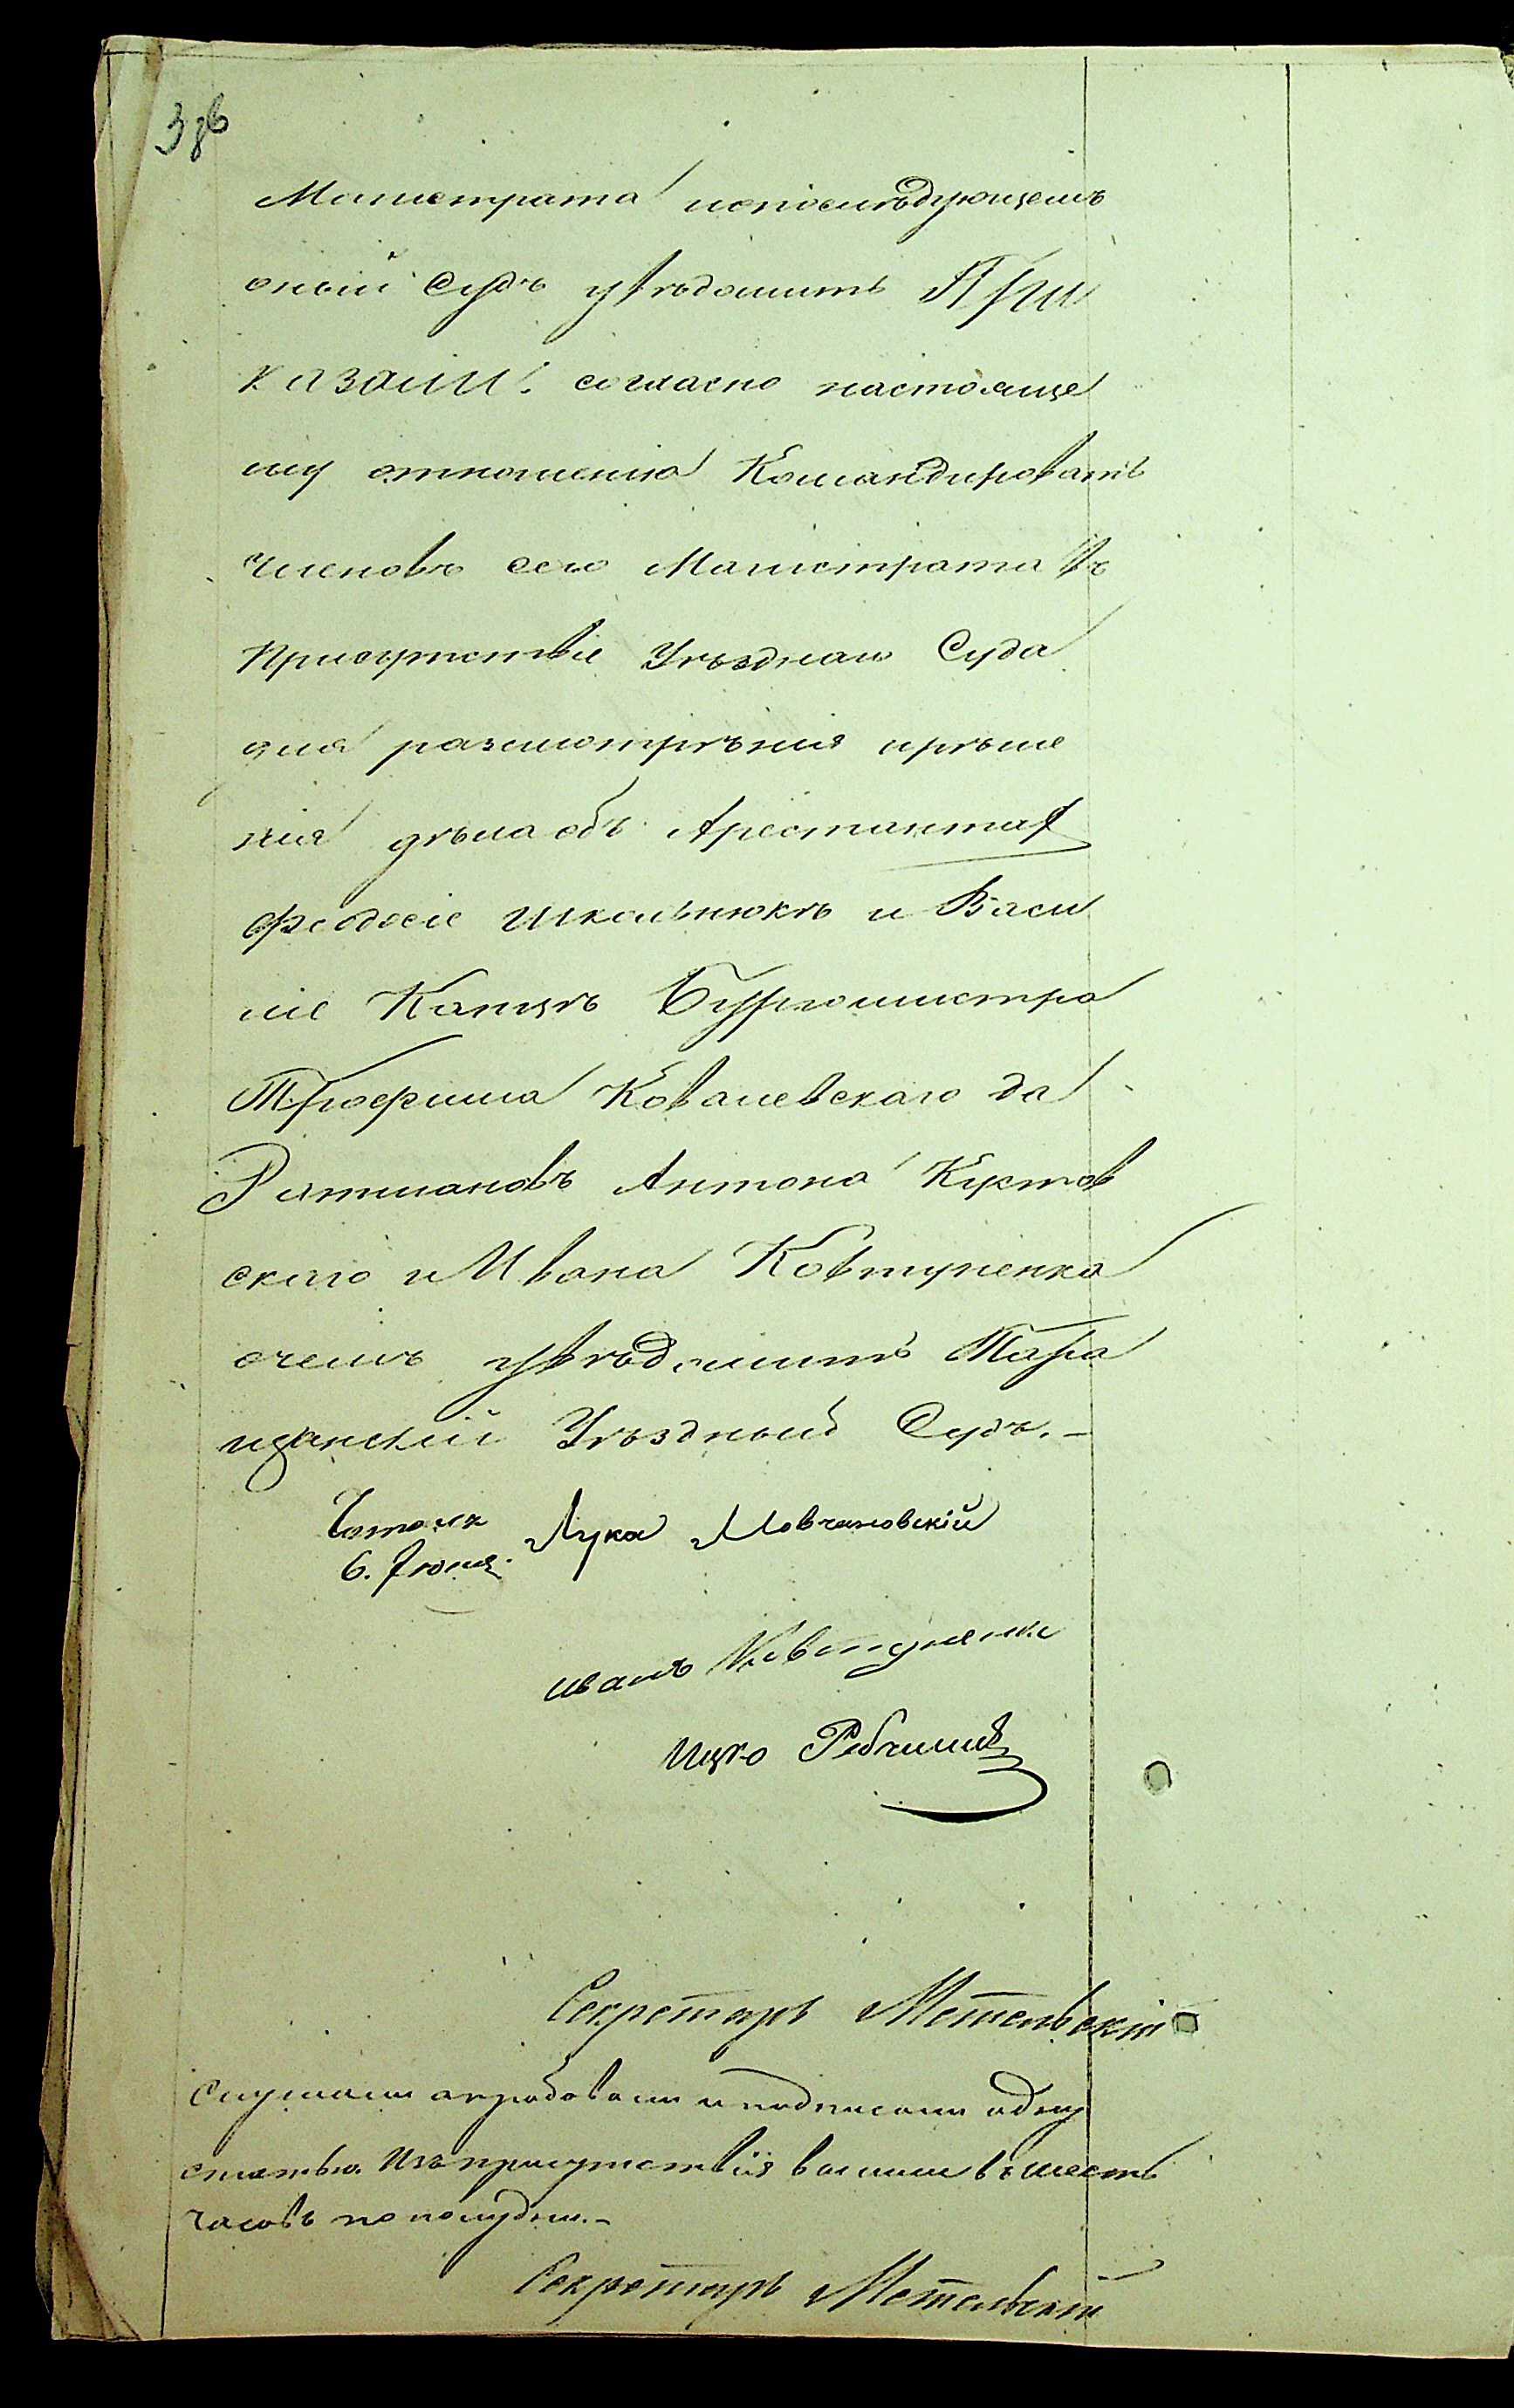 Магистрата ипослѣдующемъ
оный Судъ увѣдомить При
казали: согласно настояще
му отношенію Командировать
членовъ сего Магистрата въ
присутствіе Уѣзднаго Суда
для разсмотрѣнія ирѣше
нія дѣла объ Арестантах
Феодосіе Школьнюкѣ и Васи
ліе Капцѣ Бургомистра
Трофима Ковалевскаго да
Ратмановъ Антона Куктов
скаго и Ивана Ковтуненка
очемъ увѣдомить Тара
щанскій Уѣздный Судъ.-
Лука Мовчановскій
6. Июня.
иванъ Ковтуненко
Ицко
Секретарь Метельскій
Слушали апробовали и подписали одну
статью. Изъ присутствія вышли въ шесть
часовъ по полудни.-
Секретарь Метельскій